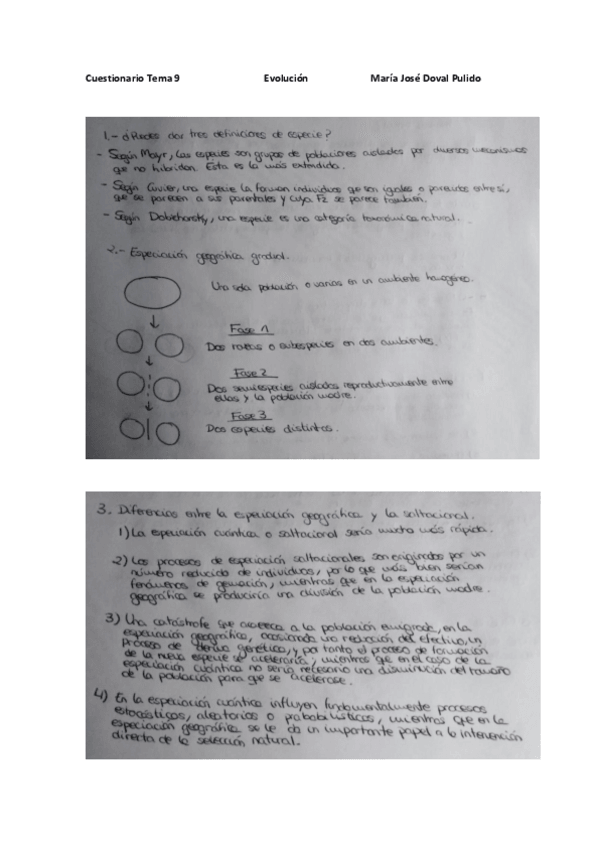 Cuestionario Tema 9 Evolución María José Doval Pulido
1.- ¿Puedes dar tres definiciones de especie?
- Según Mayr, las especies son grupos de poblaciones aislados por diversos mecanismos
que no hibridan. Esta es la más extendida.
- Según Cuvier, una especie la forman individuos que son iguales o parecidos entre sí,
que se parecen a sus parentales y cuya F2 se parece también.
- Según Dobzhansky, una especie es una categoría taxonómica natural.
2.- Especiación geográfica gradual.
Una sola población o varias en un ambiente homogéneo.
Fase 1
Dos razas o subespecies en dos ambientes.
Fase 2
Dos semiespecies aislados reproductivamente entre
ellas y la población madre.
Fase 3
Dos especies distintas.
3. Diferencias entre la especiación geográfica y la saltacional.
1) La especiación cuántica o saltacional sería mucho más rápida.
2) Los procesos de especiación saltacionales son originados por un
número reducido de individuos, por lo que más bien serían
fenómenos de gemación, mientras que en la especiación
geográfica se produciría una división de la población madre.
3) Una catástrofe que acontezca a la población emigrada, en la
especiación geográfica, ocasionaría una reducción del efectivo, un
proceso de deriva genética, y por tanto el proceso de formación
de la nueva especie se aceleraría, mientras que en el caso de la
especiación cuántica no sería necesario una disminución del tamaño
de la población para que se acelerase.
4) En la especiación cuántica influyen fundamentalmente procesos
estocásticos, aleatorios o probabilísticos, mientras que en la
especiación geográfica se le da un importante papel a la intervención
directa de la selección natural.